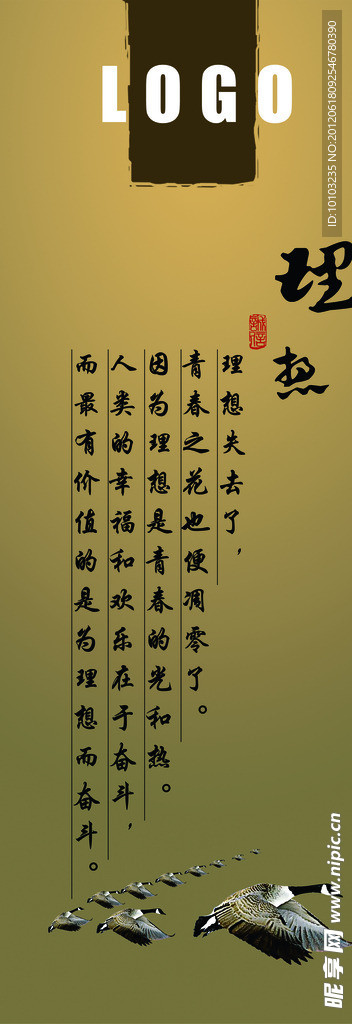 LOGO
理
热
理想失去了，
青春之花也便凋零了。
因为理想是青春的光和热。
人类的幸福和欢乐在于奋斗，
而最有价值的是为理想而奋斗。
ID:10103235 NO:20120618092546780390
昵享网 www.nipic.cn